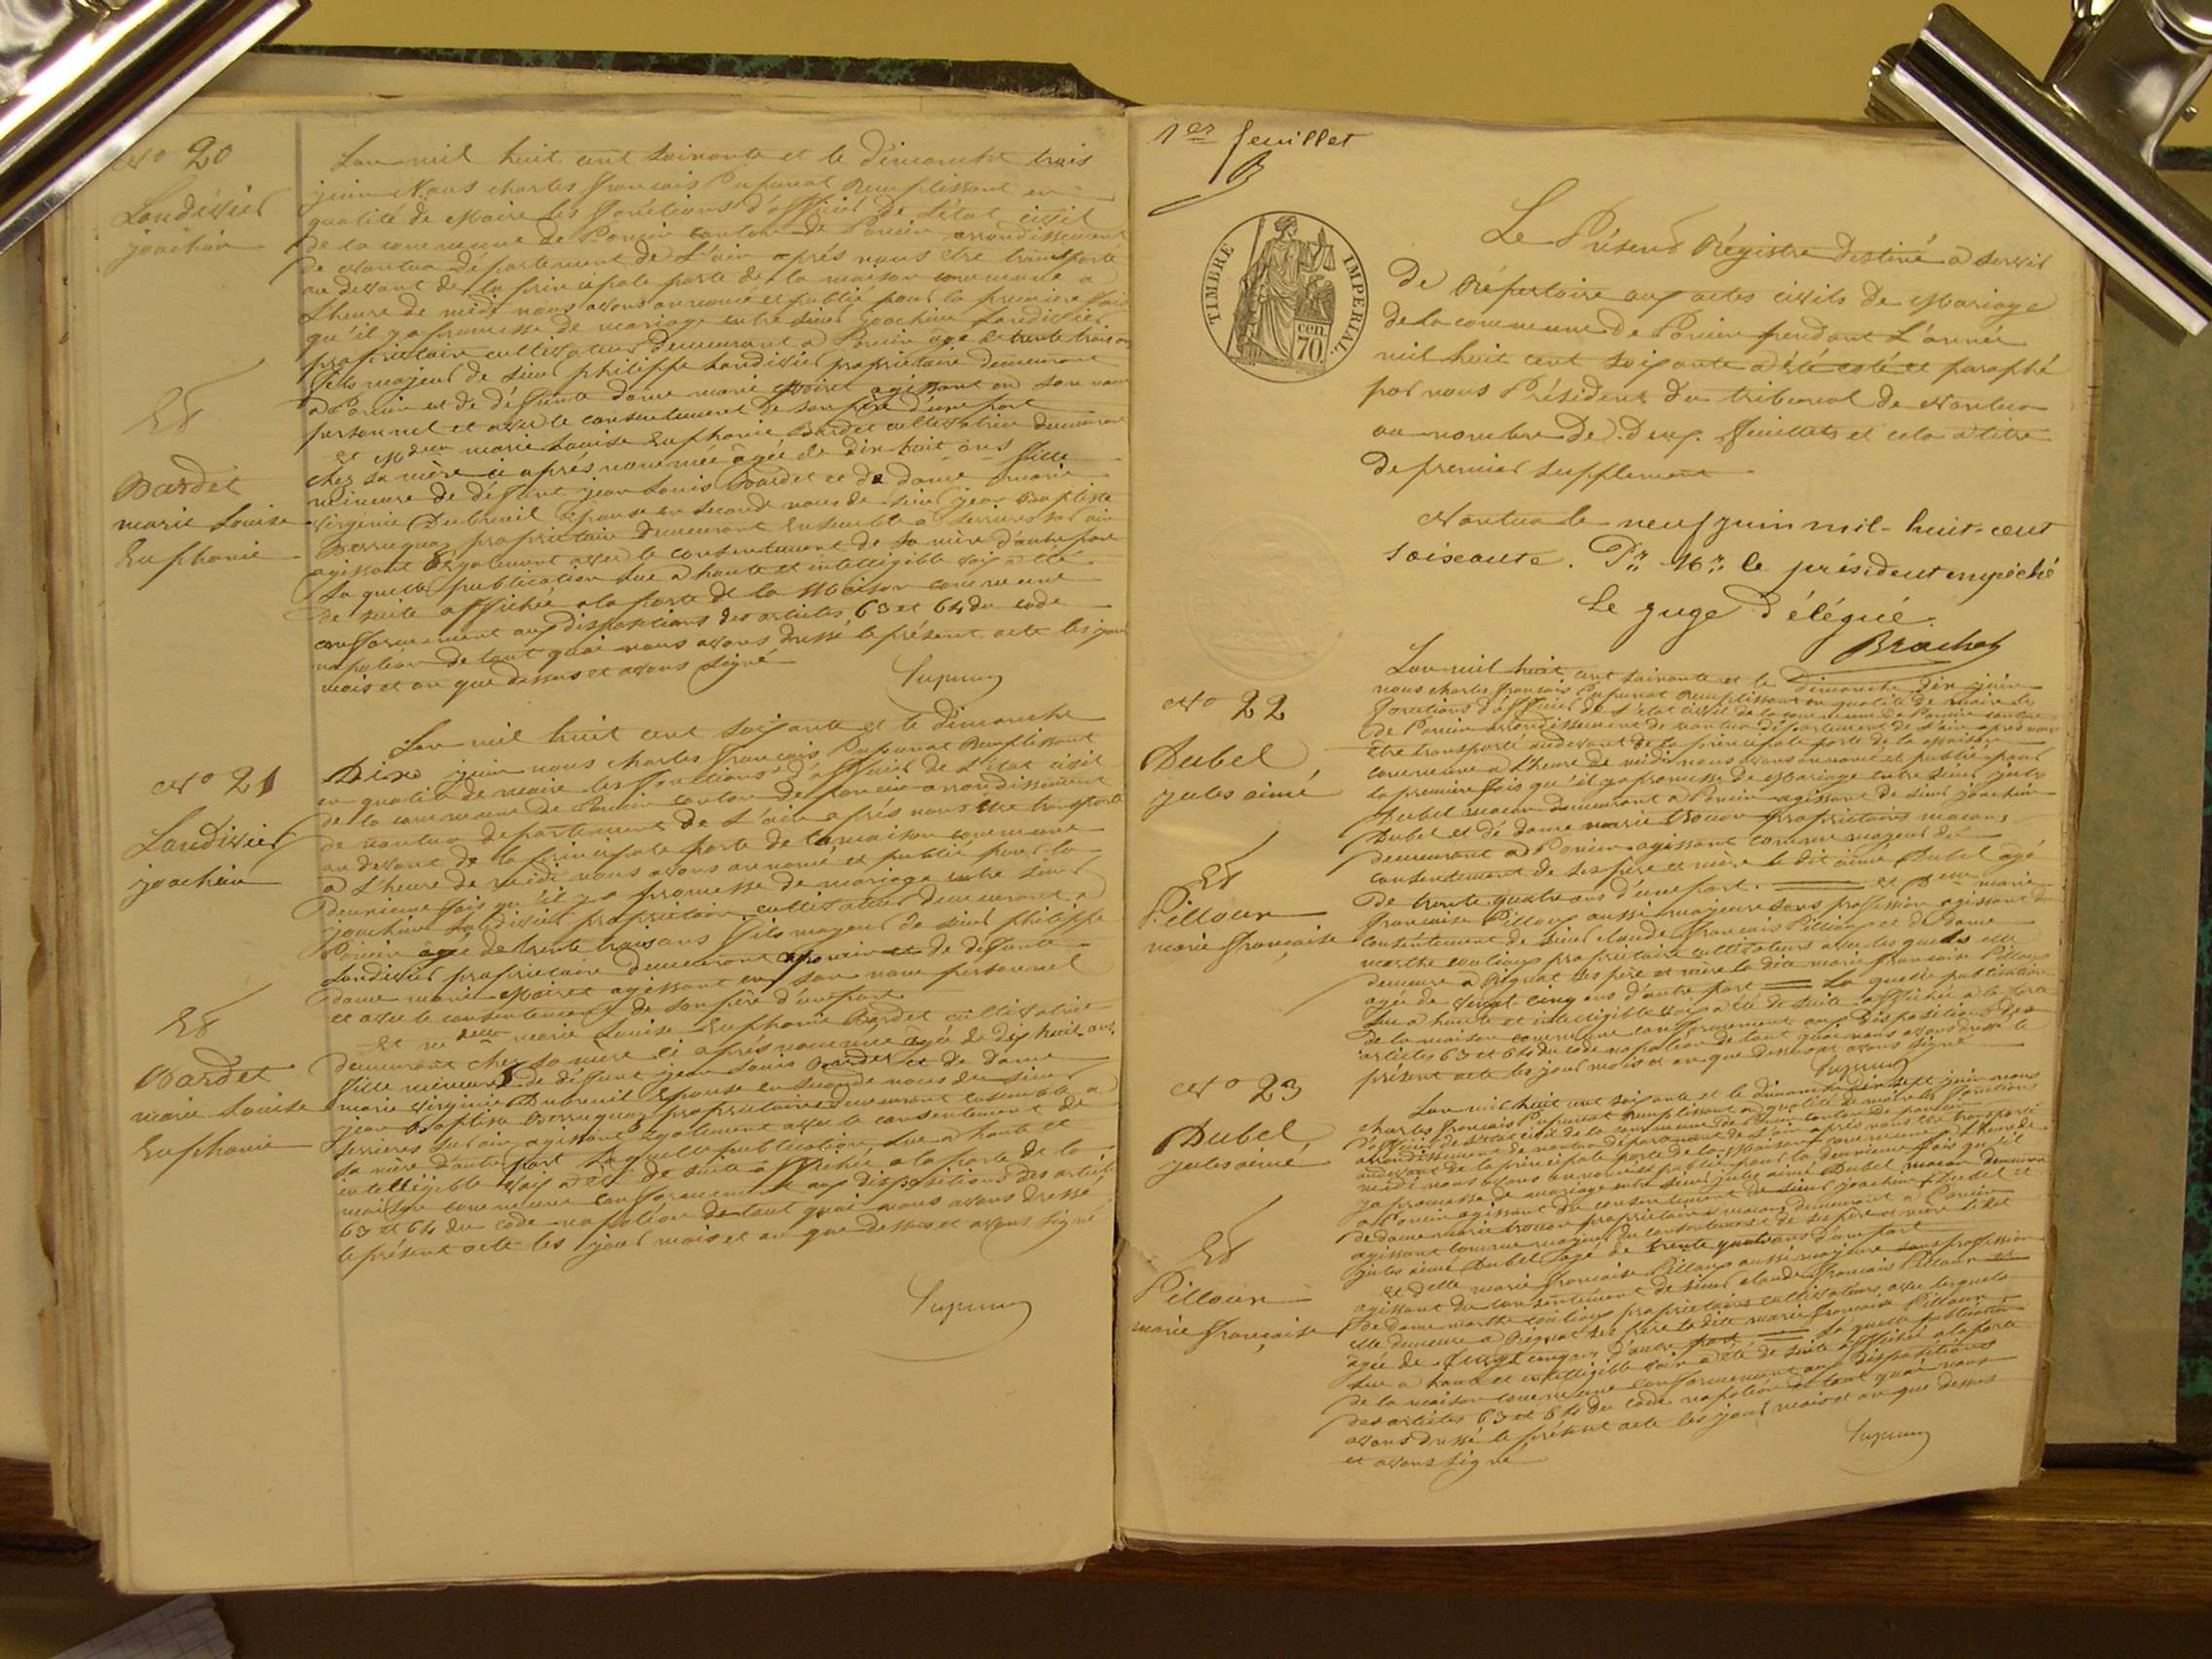 No 20
Landivier
joachim
Et
Bardet
marie Louise
Euphonie
L'an mil huit cent soixante et le dimanche trois
juin Nous charles francois Papunat Remplissant en
qualité de Maire les fonctions d'officier De L'état civil
de la commune de Poncin canton de Poncin arrondissement
de Nantua département de L'ain après nous être transporté
au devant de la principale porte de la maison commune a
L'heure de midi nous avons annoncé et publié pour la premiere fois
qu'il y a promesse de mariage entre sieur joachim Landivier
propriétaire cultivateur demeurant a Poncin agé de trente trois ans
fils majeur de sieur philippe Landivier propriétaire demeurant
a Poncin et de défunte dame marie Moiret agissant en son nom
personnel et avec le consentement de son père d'une part
Et Mdelle marie Louise Euphonie Bardet cultivatrice demeurant
chez sa mère ci après nommée âgée de dix huit ans fille
mineure de défunt jean Louis Bardet et de dame marie
virginie Dubreuil épouse en seconde noces de sieur jean Baptiste
propriétaire demeurant Ensemble a Serrieres sur ain
agissant également avec le consentement de sa mère d'autre part
La quelle publication lue a haute et intelligible voix a été
de suite affichée a la porte de la Maison commune
conformément aux dispositions des articles 63 et 64 du code
napoléon de tout quoi nous avons dressé le présent acte les jour
mois et an que dessus et avons signé
No 21
Landivier
joachim
Et
Bardet
marie Louise
Euphonie
L'an mil huit cent soixante et le dimanche
Dix juin nous charles francois Papunat Remplissant
en qualité de maire les fonctions d'officier de L'état civil
de la commune de Poncin canton de poncin arrondissement
de nantua departement de L'ain après nous être transporté
au devant de la principale porte de la maison commune
a L'heure de midi nous avons annoncé et publié pour la
deuxieme fois qu'il y a promesse de mariage entre sieur
joachim Landivier propriétaire cultivateur demeurant a
Poncin âgé de trente trois ans fils majeur de sieur philippe
Landivier propriétaire demeurant a poncin et de défunte
dame marie Moiret agissant en son nom personnel
et avec le consentement de son père d'une part
Et mdelle marie Louise Euphonie Bardet cultivatrice
demeurant chez sa mère ci après nommée âgée de dix huit ans
fille mineure de défunt jean Louis Bardet et de dame
marie virginie Dubreuil Epouse en seconde noces du sieur
jean Baptiste propriétaire demeurant ensemble a
Serrieres sur ain agissant également avec le consentement de
sa mère d'autre part La quelle publication lue a haute et
intelligible voix a été de suite affichée a la porte de la
maison commune conformément aux dispositions des articles
63 et 64 du code napoléon de tout quoi nous avons dressé
le présent acte les jour mois et an que dessus et avons signé
1er feuillet
TIMBRE IMPERIAL.
cen.
70.
Le Présent Régistre destiné a servir
De Répertoire aux actes civils de Mariage
de la commune de Poncin pendant L'année
mil huit cent soixante a été coté et paraphé
par nous Président du tribunal de Nantua
au nombre De Deux feuillets et cela a titre
de premier supplement
Nantua le neuf juin mil-huit-cent
soixante. Pr. Mr. le président empêché
Le juge Délégué.
Brachet
No 22
Dubel
jules aimé
Et
Pilloux
marie française
L'an mil huit cent soixante et le Dimanche Dix juin
nous charles francois Papunat Remplissant en qualité de maire les
fonctions d'officier de L'état civil de la commune de Poncin canton
de Poncin arrondissement de nantua département de L'ain après nous
être transporté au devant de la principale porte de la maison
commune a L'heure de midi nous avons annoncé et publié pour
la premiere fois qu'il y a promesse de Mariage entre sieur jules
Dubel macon demeurant a Poncin agissant de sieur joachim
Dubel et de dame marie propriétaires macons
demeurant a Poncin agissant comme majeur du
consentement de ses père et mère le dit aimé Dubel agé
de trente quatre ans d'une part. Et Delle marie
francaise Pilloux aussi majeure sans profession agissant du
consentement de sieur claude francois Pilloux et de Dame
marthe propriétaire cultivateurs avec les quels elle
demeure a Rignat ses père et mère la dite marie francaise Pilloux
agée de vingt-cinq ans d'autre part La quelle publication
lue a haute et intelligible voix a été de suite affichée a la Porte
de la maison commune conformément aux dispositions des
articles 63 et 64 du code napoléon de tout quoi nous avons dressé le
présent acte les jour mois et an que dessus et avons signé
No 23
Dubel
jules aimé
Et
Pilloux
marie française
L'an mil huit cent soixante et le dimanche dix sept juin nous
charles francois Papunat Remplissant en qualité de maire les fonctions
d'officier de L'état civil de la commune de Poncin canton de poncin
arrondissement de nantua département de L'ain après nous être transporté
au devant de la principale porte de la Maison commune a L'heure de
midi nous avons annoncé et publié pour la deuxieme fois qu'il
y a promesse de mariage entre sieur jules aimé Dubel macon demeurant
a Poncin agissant du consentement de sieur joachim Dubel et
de dame marie propriétaires macons demeurant a Poncin
agissant comme majeur du consentement de ses père et mère le dit
jules aimé Dubel agé de trente quatre ans d'une part
Et delle marie francaise Pilloux aussi majeure sans profession
agissant du consentement de sieur claude francois Pilloux et
de dame marthe propriétaires cultivateurs avec lesquels
elle demeure a Rignat ses père la dite marie francaise Pilloux
âgée de vingt cinq ans d'autre part La quelle publication
lue a haute et intelligible voix a été de suite affichée a la porte
de la maison commune conformément aux dispositions
des articles 63 et 64 du code napoléon de tout quoi nous
avons dressé le présent acte les jour mois et an que dessus
et avons signé